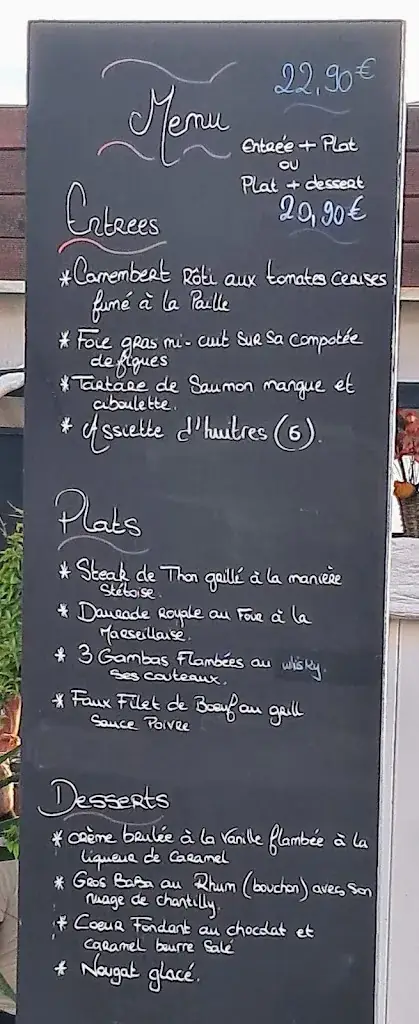 Menu
22,90€
Entrée + Plat
ou
Plat + dessert
20,90€
Entrees
* Camembert Rôti aux tomates cerises
fumé à la Paille
* Foie gras mi-cuit sur sa compotée
de figues
* Tartare de Saumon mangue et
ciboulette.
* Assiette d'huitres (6).
Plats
* Steak de Thon grillé à la manière
Sètoise.
* Daurade Royale au Four à la
Marseillaise.
* 3 Gambas Flambées au whisky.
Ses couteaux.
* Faux Filet de Boeuf au grill
Sauce Poivre
Desserts
* crème brulée à la Vanille flambée à la
liqueur de Caramel
* Gros BaBa au Rhum (bouchon) avec son
nuage de chantilly.
* Coeur Fondant au chocolat et
Caramel beurre Salé
* Nougat glacé.